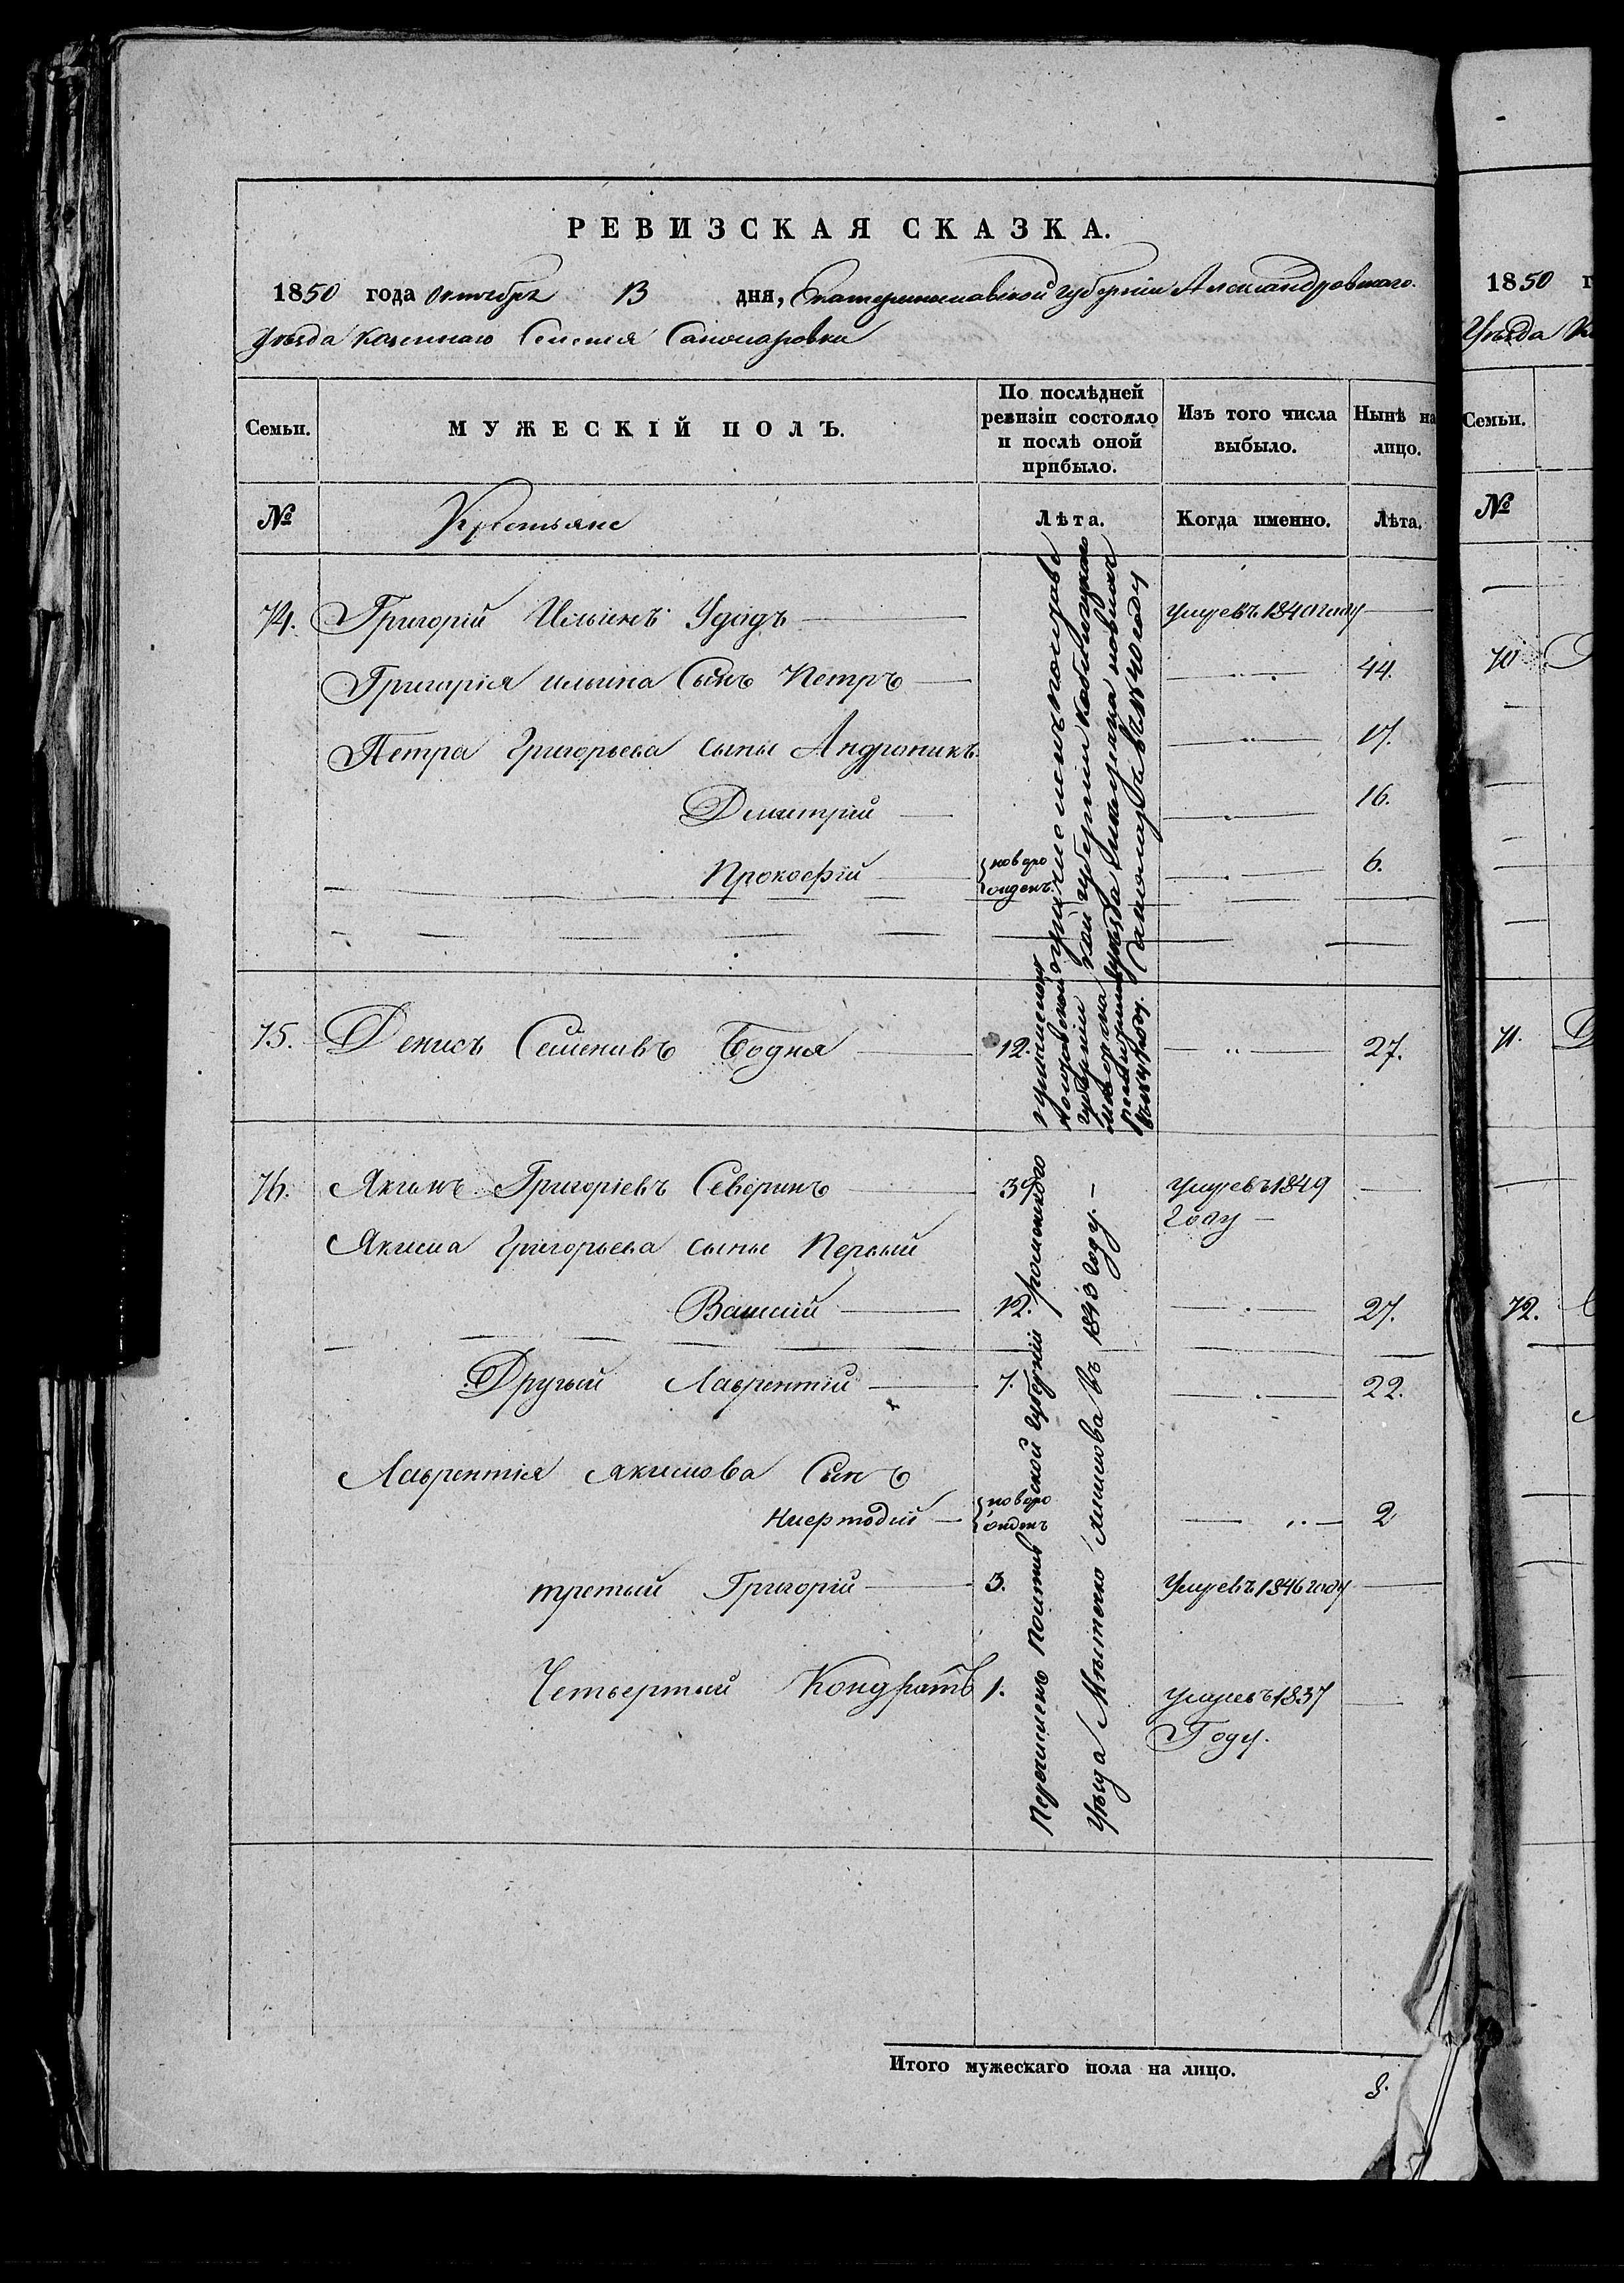 РЕВИЗСКАЯ СКАЗКА.
1850 года Октября 13 дня, Екатеринославской губерніи Александровскаго
уѣзда казеннаго Селенія
Семьи.
МУЖЕСКІЙ ПОЛЪ.
По послѣдней ревизіи состояло и послѣ оной прибыло.
Изъ того числа выбыло.
Нынѣ на лицо.
№
Крестьяне
Лѣта.
Когда именно.
Лѣта.
74. Григорій Ильинъ Удодъ умре въ 1840 году
Григорія ильина Сынъ Петръ 44.
Петра Григорьева сыны Андроникъ 17.
Дмитрій 16.
Прокофій новоро жденъ 6.
75. Денисъ Семеновъ Бодня 12. 27.
76. Якимъ Григоріевъ Северинъ 39 умре въ 1849 Году
Якима Григорьева сыны Первый
Василій 12. 27.
Другый Лаврентій 7. 22.
Лаврентія якимова Сынъ
новоро жденъ 2
третый Григорій 3. Умре въ 1846 году
Четвертый Кондратъ 1. умре въ 1837
Году.
перечисленъ
губерніи
въ 1840 году
Перечисленъ Полтавской губерніи
Уѣзда Мѣстечко въ 1843 году.
Итого мужескаго пола на лицо.
8.
1850 г
Уѣзда
Семьи.
№
70
71.
72.